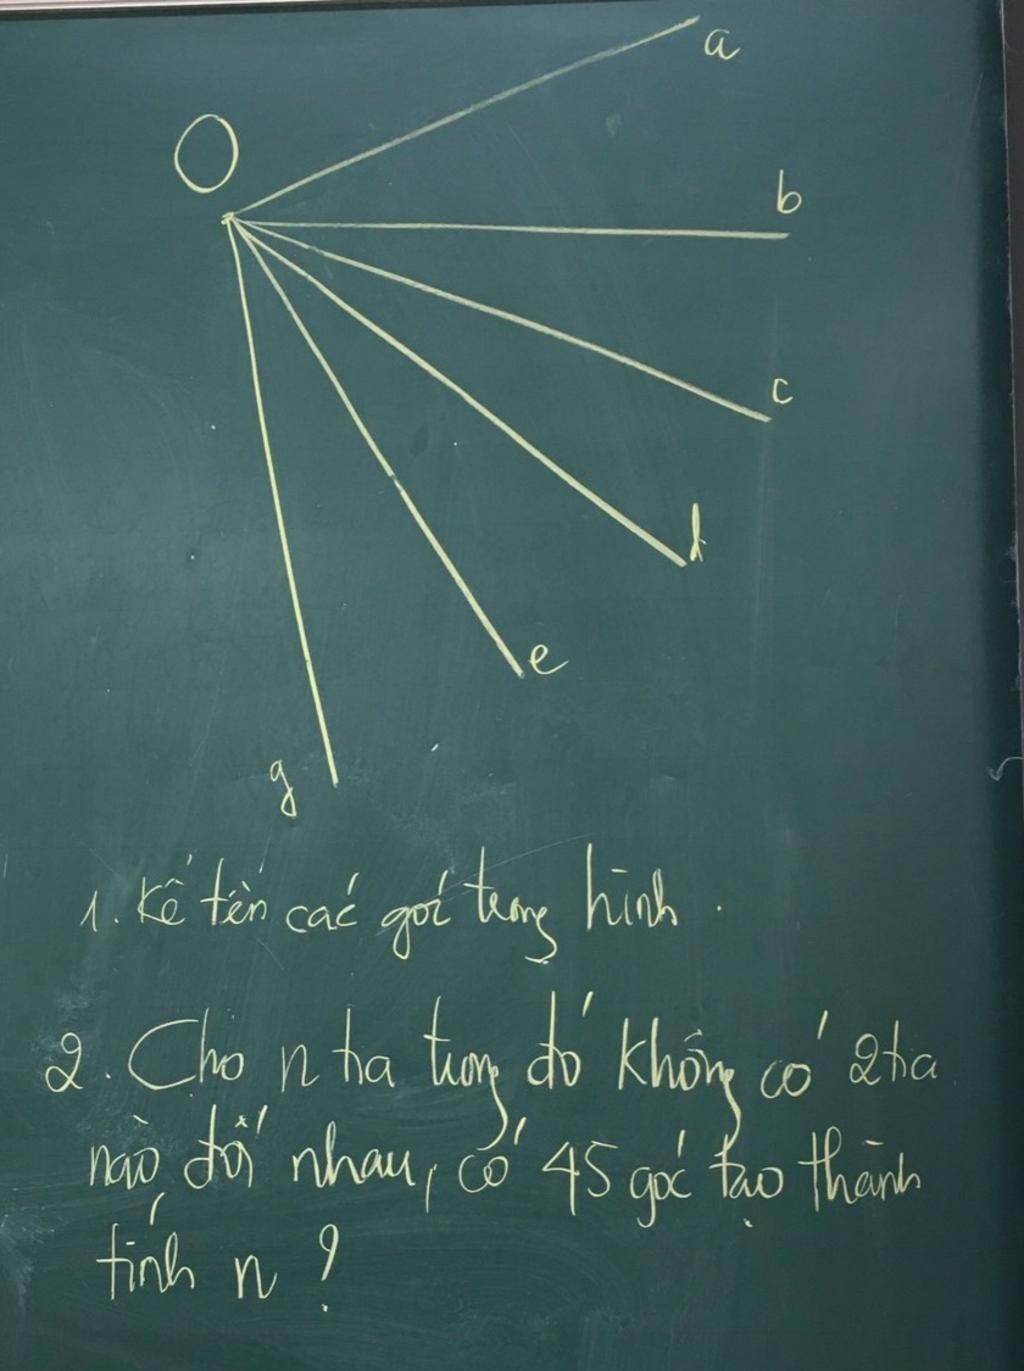 a
O
b
c
d
e
g
1. Kể tên các góc trong hình.
2. Cho n tia trong đó không có 2 tia
nào đối nhau, có 45 góc tạo thành
tính n ?